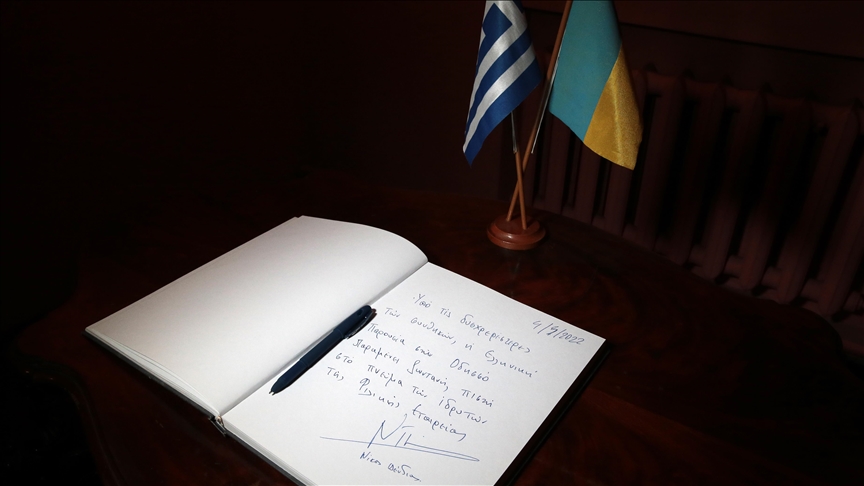 4/9/2022
Υπό τις δυσχερέστερες
των συνθηκών, η Ελληνική
Παρουσία στην Οδησσό
παραμένει ζωντανή, πιστή
στο πνεύμα των ιδρυτών
της Φιλικής Εταιρείας
Νίκος Δένδιας